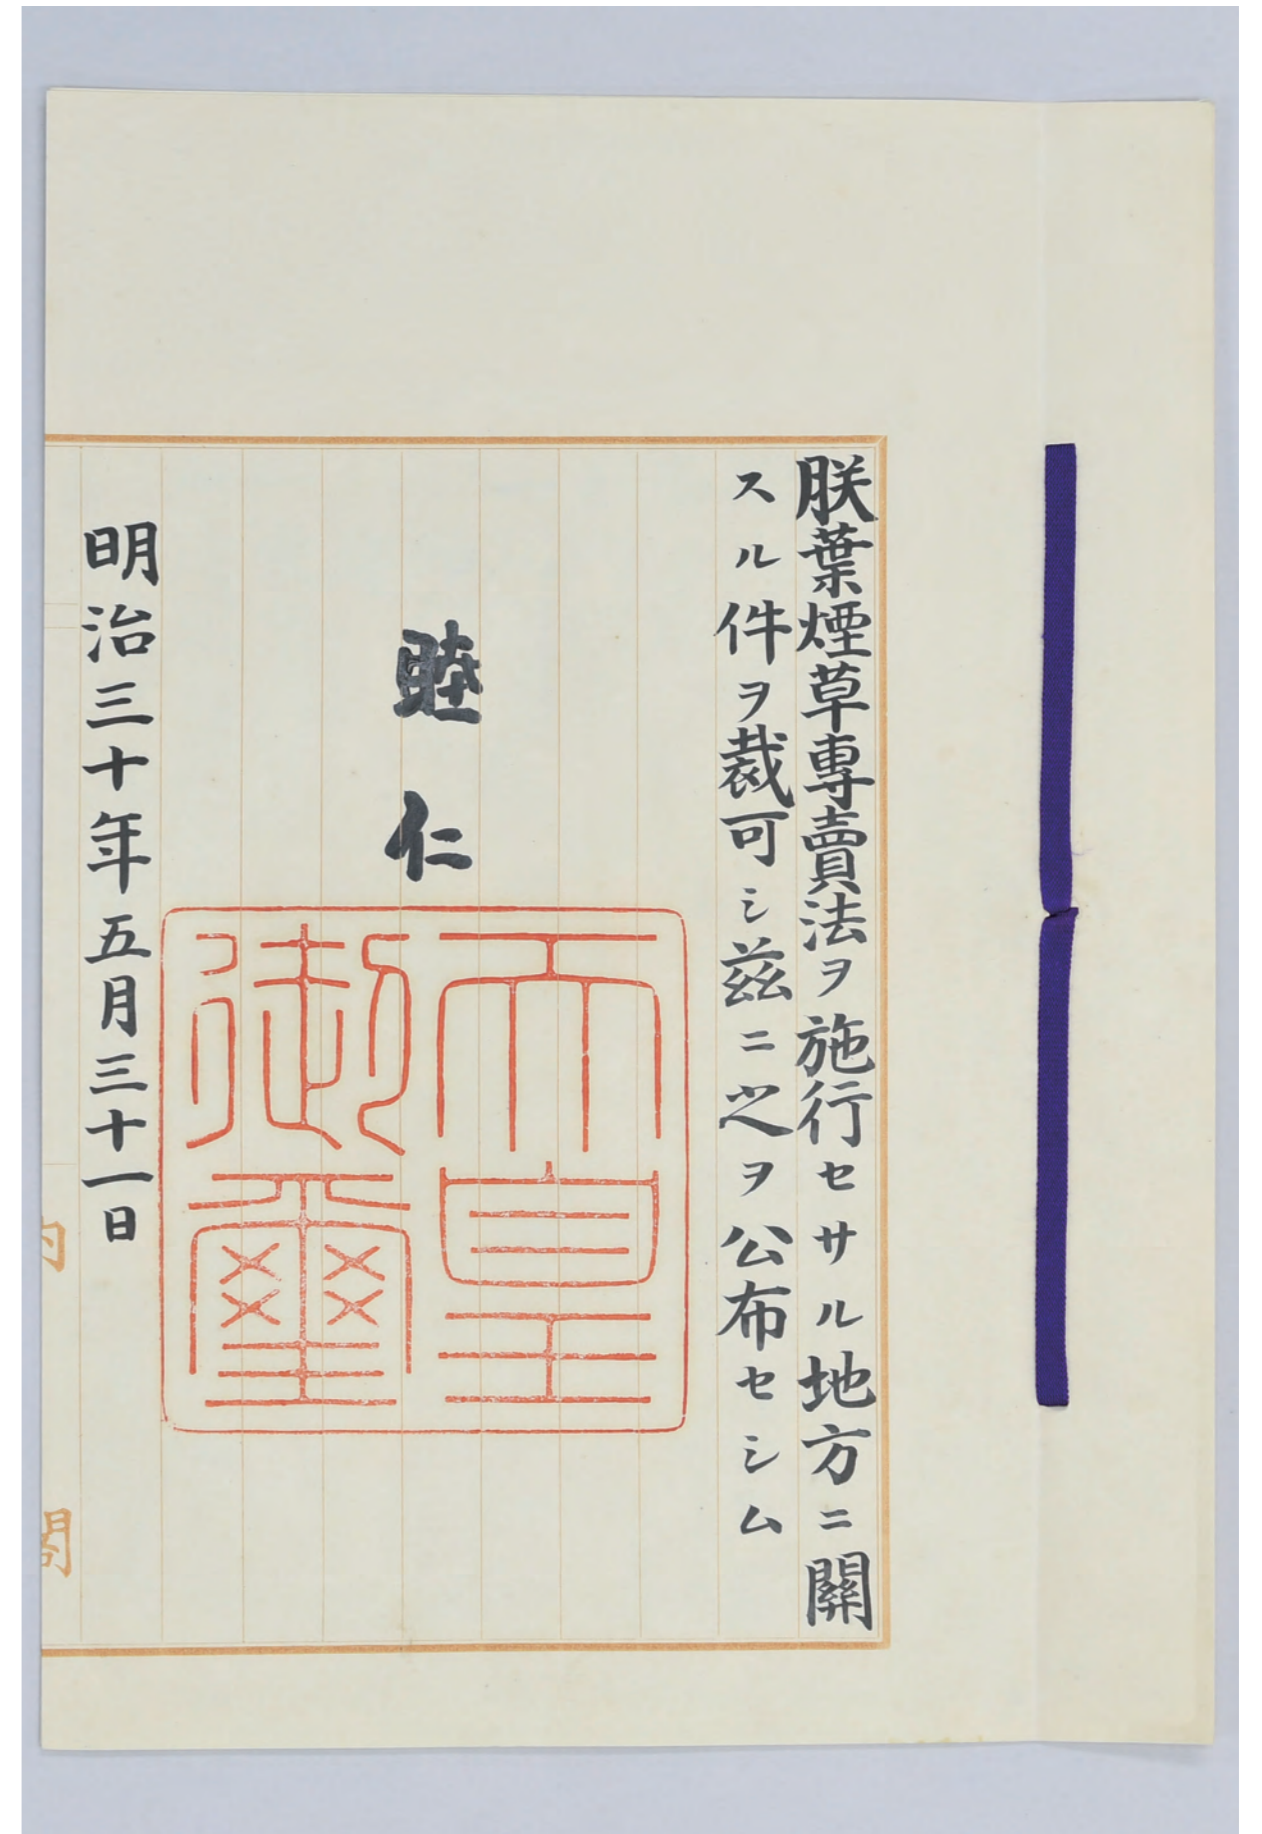 朕葉煙草專賣法ヲ施行セサル地方ニ關
スル件ヲ裁可シ茲ニ之ヲ公布セシム
睦仁
天皇
御璽
明治三十年五月三十一日
内閣